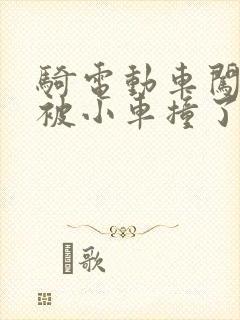 騎電動車闖
被小車撞了
歌